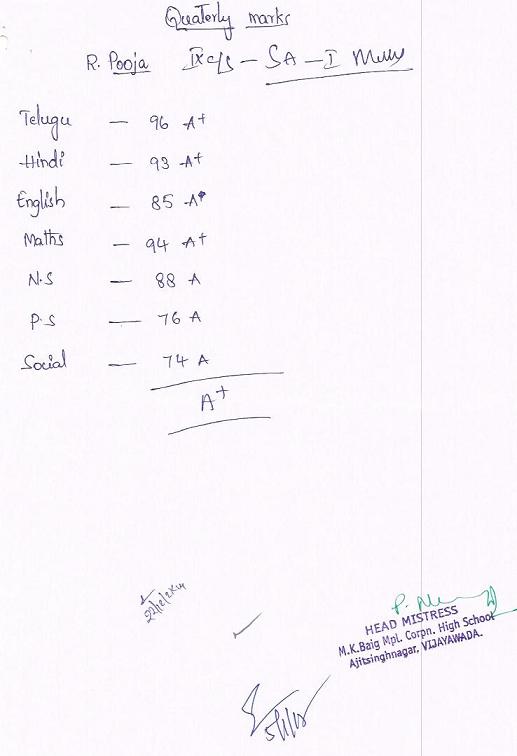 Quaterly marks
R. Pooja IX c/s - SA - I
Telugu - 96 A+
Hindi - 93 A+
English - 85 A
Maths - 94 A+
N.S - 88 A
P.S - 76 A
Social - 74 A
A+
HEAD MISTRESS
M.K.Baig Mpl. Corpn. High School
Ajitsinghnagar, VIJAYAWADA.